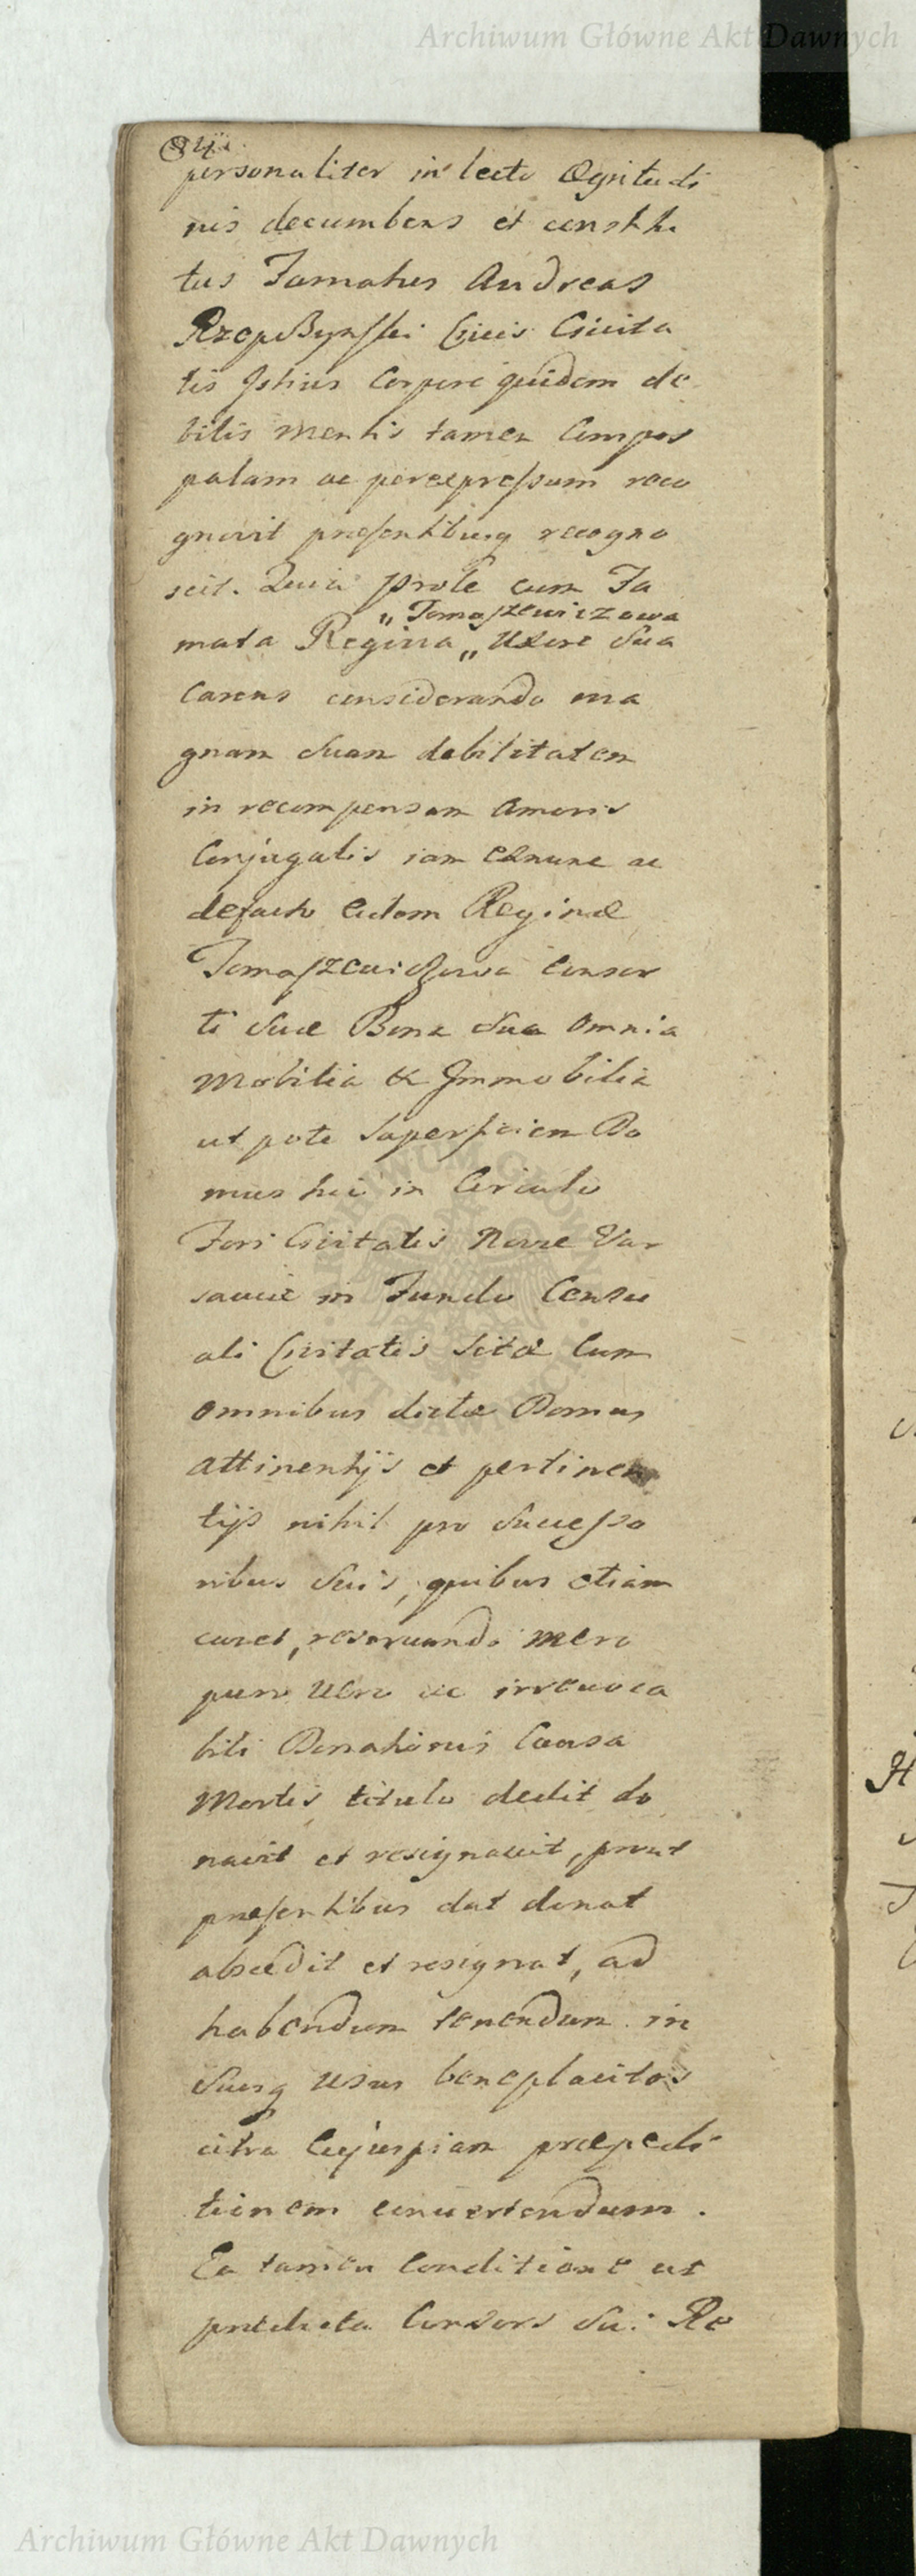 Archiwum Główne Akt Dawnych
personaliter in lecto Ægritudi
nis decumbens et constitu
tus Famatus Andreas
Civis Civita
tis Istius Corpore quidem de
bilis Mentis tamen Compos
palam ac perexpressum reco
gnovit præsentibusq recogno
scit. Quia Prole cum Fa
„Tomaszewiczowa
mata Regina „ Uxore Sua
Carens considerando ma
gnam Suam debilitatem
in recompensam Amoris
Conjugalis iam exnunc ac
defacto Eidem Reginæ
Tomaszewiczowa Consor
ti Suæ Bona Sua Omnia
Mobilia & Immobilia
ut pote Superficiem Do
mus hic in Circulo
Fori Civitatis Novæ Var
saviæ in Fundo Censu
ali Civitatis Sitæ Cum
Omnibus dictæ Domus
Attinentijs et pertinen
tijs nihil pro Successo
ribus Suis, quibus etiam
caret, reservando mero
puro Vero ac irrevoca
bili Donationis Causa
Mortis titulo dedit do
navit et resignavit, prout
præsentibus dat donat
abscedit et resignat, ad
habendum tenendum in
Suosq Usus beneplacitos
citra Cujuspiam præpedi
tionem convertendum.
Ea tamen Conditione ut
prædicta Consors Sui Re
Archiwum Główne Akt Dawnych